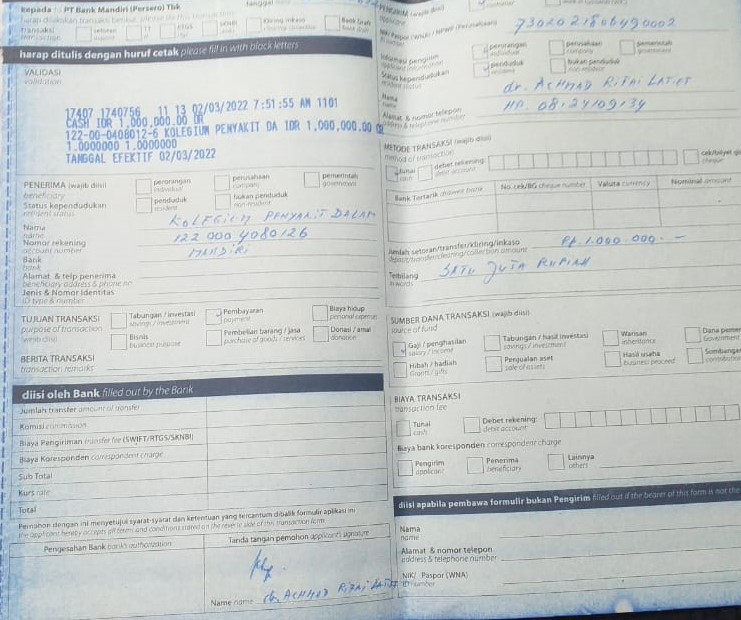 Kepada : PT Bank Mandiri (Persero) Tbk
harap ditulis dengan huruf cetak please fill in with block letters
VALIDASI
validation
17407 1740756 11 13 02/03/2022 7:51:55 AM 1101
CASH IDR 1,000,000.00 DR
122-00-0408012-6 KOLEGIUM PENYAKIT DA IDR 1,000,000.00 CR
1.0000000 1.0000000
TANGGAL EFEKTIF 02/03/2022
PENERIMA (wajib diisi)
beneficiary
perorangan
individual
perusahaan
company
pemerintah
government
Status kependudukan
resident status
penduduk
resident
bukan penduduk
non-resident
Nama
name
KOLEGIUM PENYAKIT DALAM
Nomor rekening
account number
122 000 4080126
Bank
bank
MANDIRI
Alamat & telp penerima
beneficiary address & phone no
Jenis & Nomor Identitas
ID type & number
TUJUAN TRANSAKSI
purpose of transaction
(wajib diisi)
Tabungan / investasi
savings / investment
Pembayaran
payment
Biaya hidup
personal expenses
Bisnis
business purpose
Pembelian barang / jasa
purchase of goods / services
Donasi / amal
donation
BERITA TRANSAKSI
transaction remarks
diisi oleh Bank filled out by the Bank
Jumlah transfer amount of transfer
Komisi commission
Biaya Pengiriman transfer fee (SWIFT/RTGS/SKNBI)
Biaya Koresponden correspondent charge
Sub Total
Kurs rate
Total
Pemohon dengan ini menyetujui syarat-syarat dan ketentuan yang tercantum dibalik formulir aplikasi ini
the applicant hereby accepts all terms and conditions stated on the reverse side of this transaction form
Pengesahan Bank bank's authorization
Tanda tangan pemohon applicant's signature
Name name dr. ACHMAD RIFAI LATIEF
PENGIRIM (wajib diisi)
applicant
NIK/ Paspor (WNA) / NPWP (Perusahaan)
7302021806490002
Informasi pengirim
applicant information
perorangan
individual
perusahaan
company
pemerintah
government
Status kependudukan
resident status
penduduk
resident
bukan penduduk
non-resident
Nama
name
dr. ACHMAD RIFAI LATIEF
Alamat & nomor telepon
address & telephone number
METODE TRANSAKSI (wajib diisi)
method of transaction
tunai
cash
debet rekening:
debit account
cek/bilyet g
cheque
Bank Tertarik drawee bank
No. cek/BG cheque number
Valuta currency
Nominal amount
Jumlah setoran/transfer/kliring/inkaso
deposit/transfer/clearing/collection amount
Rp. 1.000.000.-
Terbilang
in words
SATU JUTA RUPIAH
SUMBER DANA TRANSAKSI (wajib diisi)
source of fund
Gaji / penghasilan
salary / income
Tabungan / hasil investasi
savings / investment
Warisan
inheritance
Dana pemer
Government
Hibah / hadiah
Grants / gifts
Penjualan aset
sale of assets
Hasil usaha
business proceed
Sumbangan
contribution
BIAYA TRANSAKSI
transaction fee
Tunai
cash
Debet rekening:
debit account
Biaya bank koresponden correspondent charge
Pengirim
applicant
Penerima
beneficiary
Lainnya
others
diisi apabila pembawa formulir bukan Pengirim filled out if the bearer of this form is not the
Nama
name
Alamat & nomor telepon
address & telephone number
NIK/ Paspor (WNA)
ID number